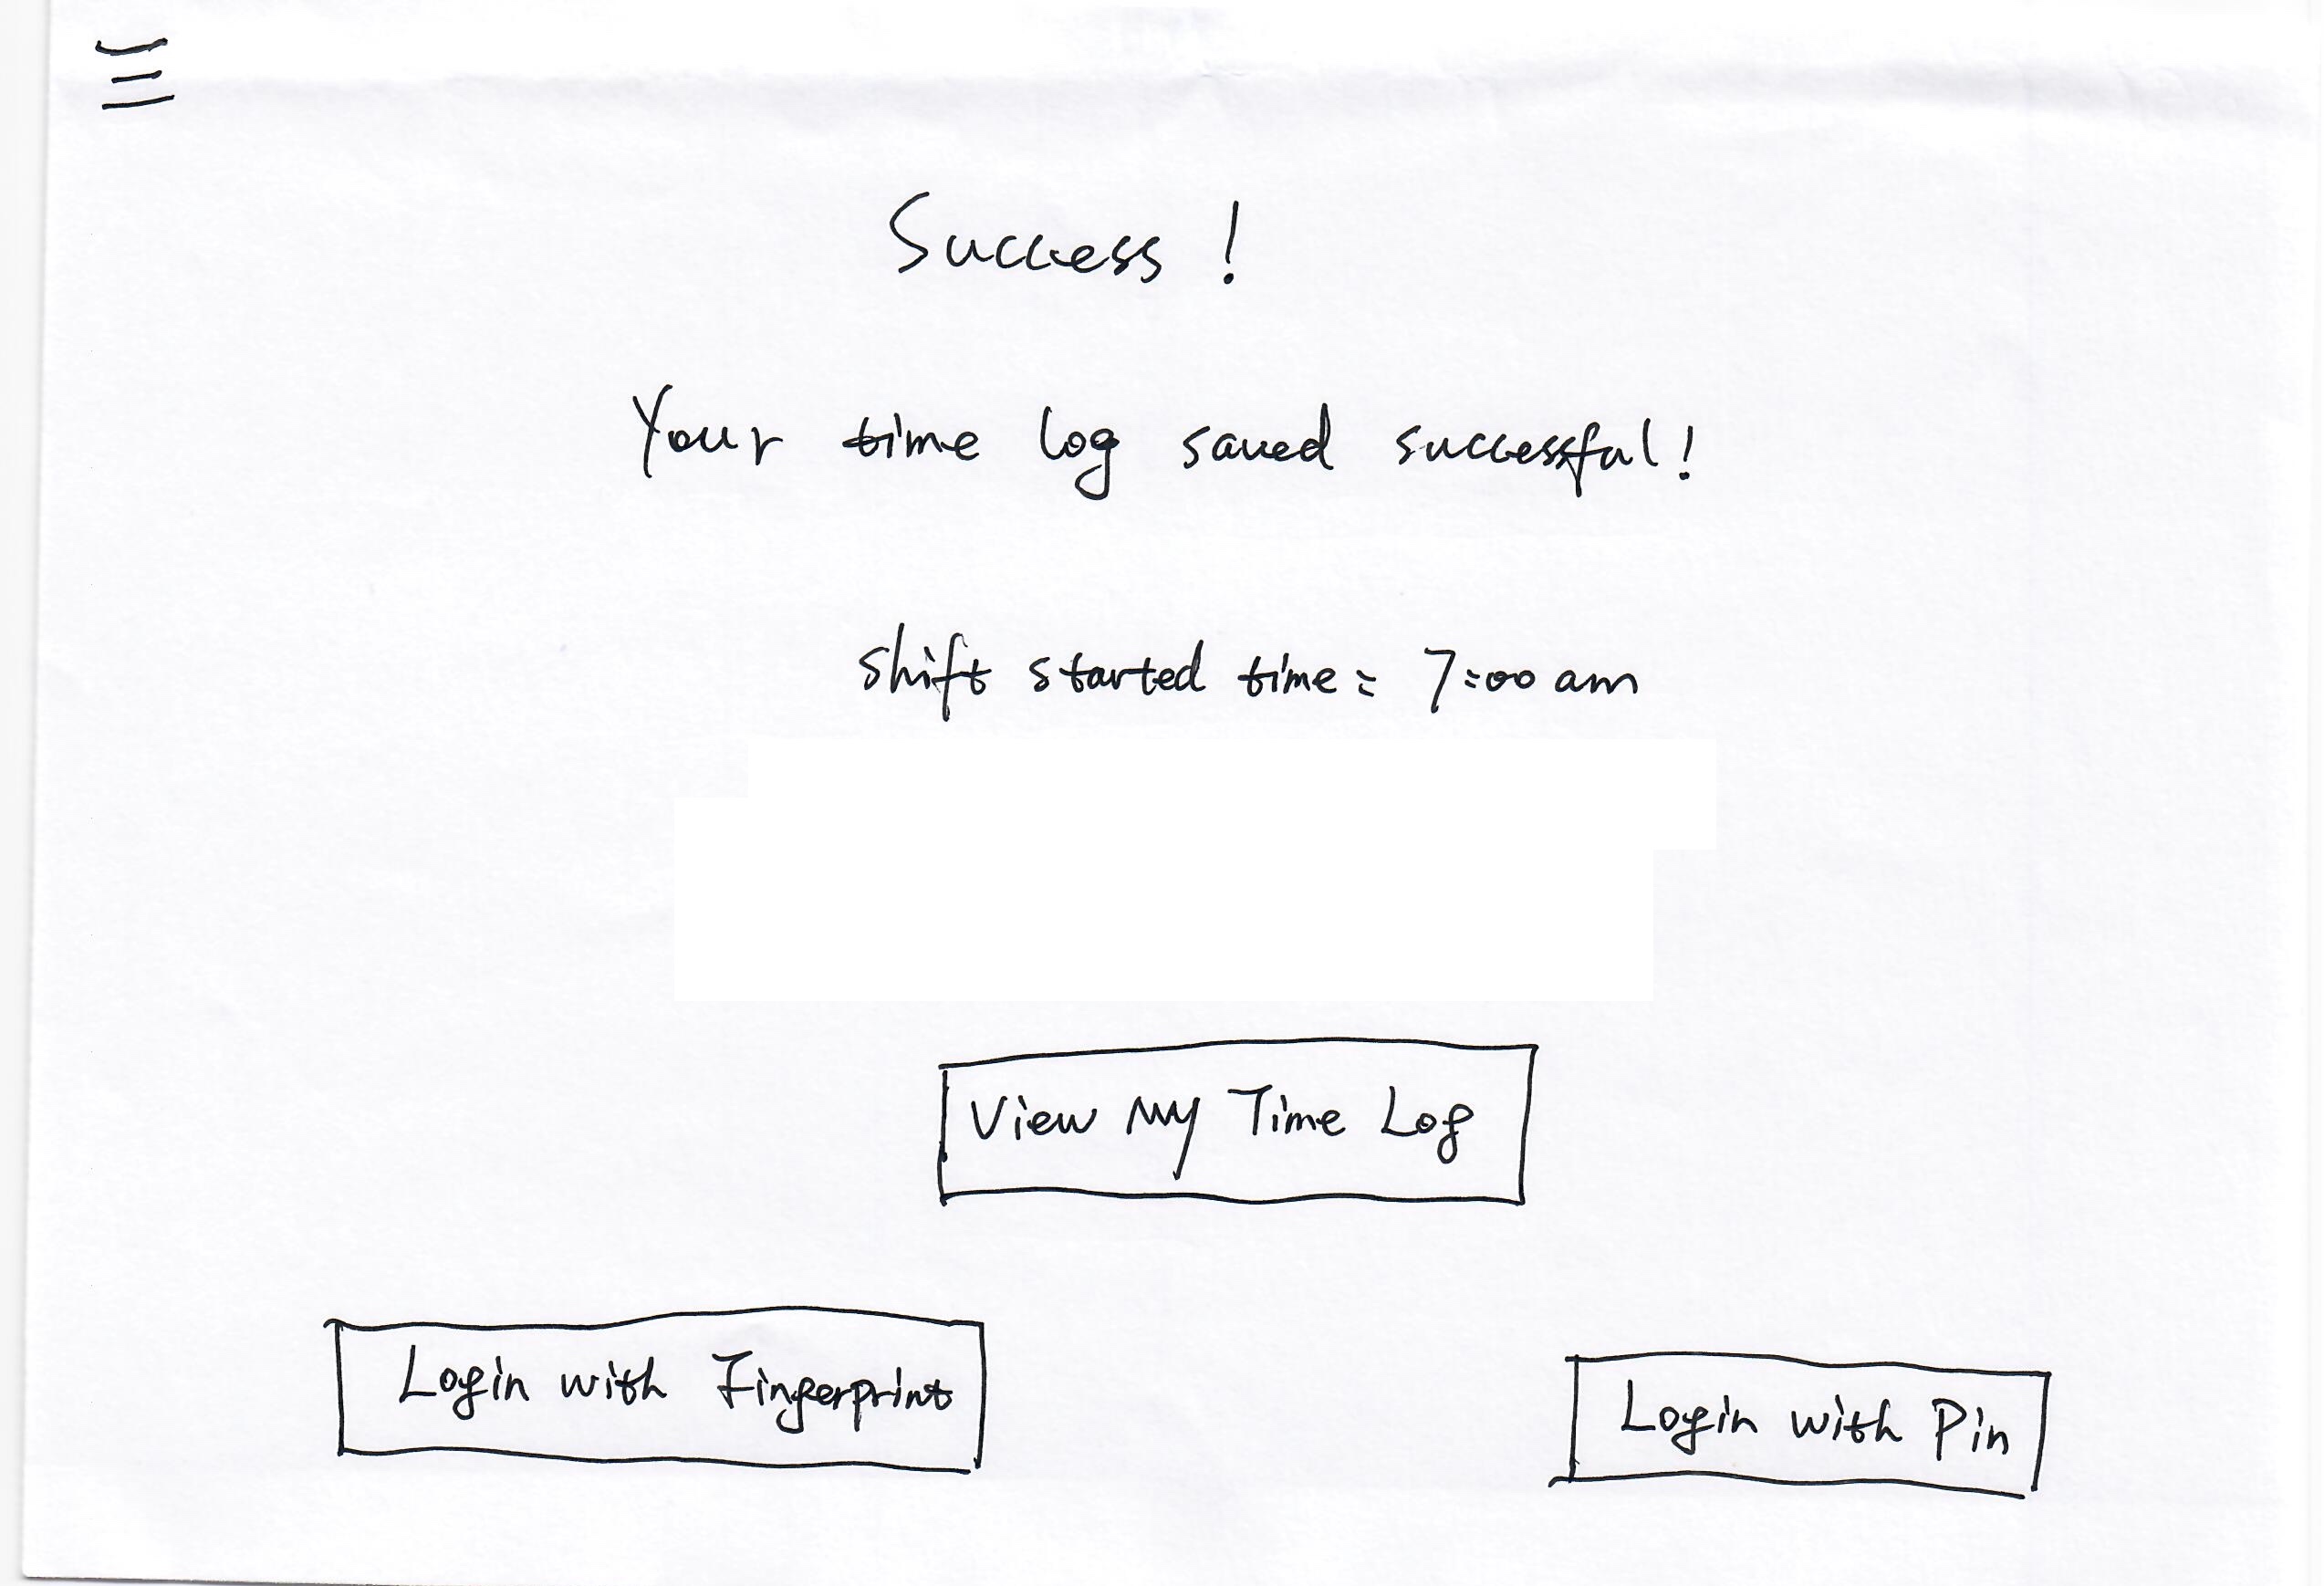 Success!
Your time log saved successful!
shift started time: 7:00 am
View My Time Log
Login with Fingerprint
Login with Pin